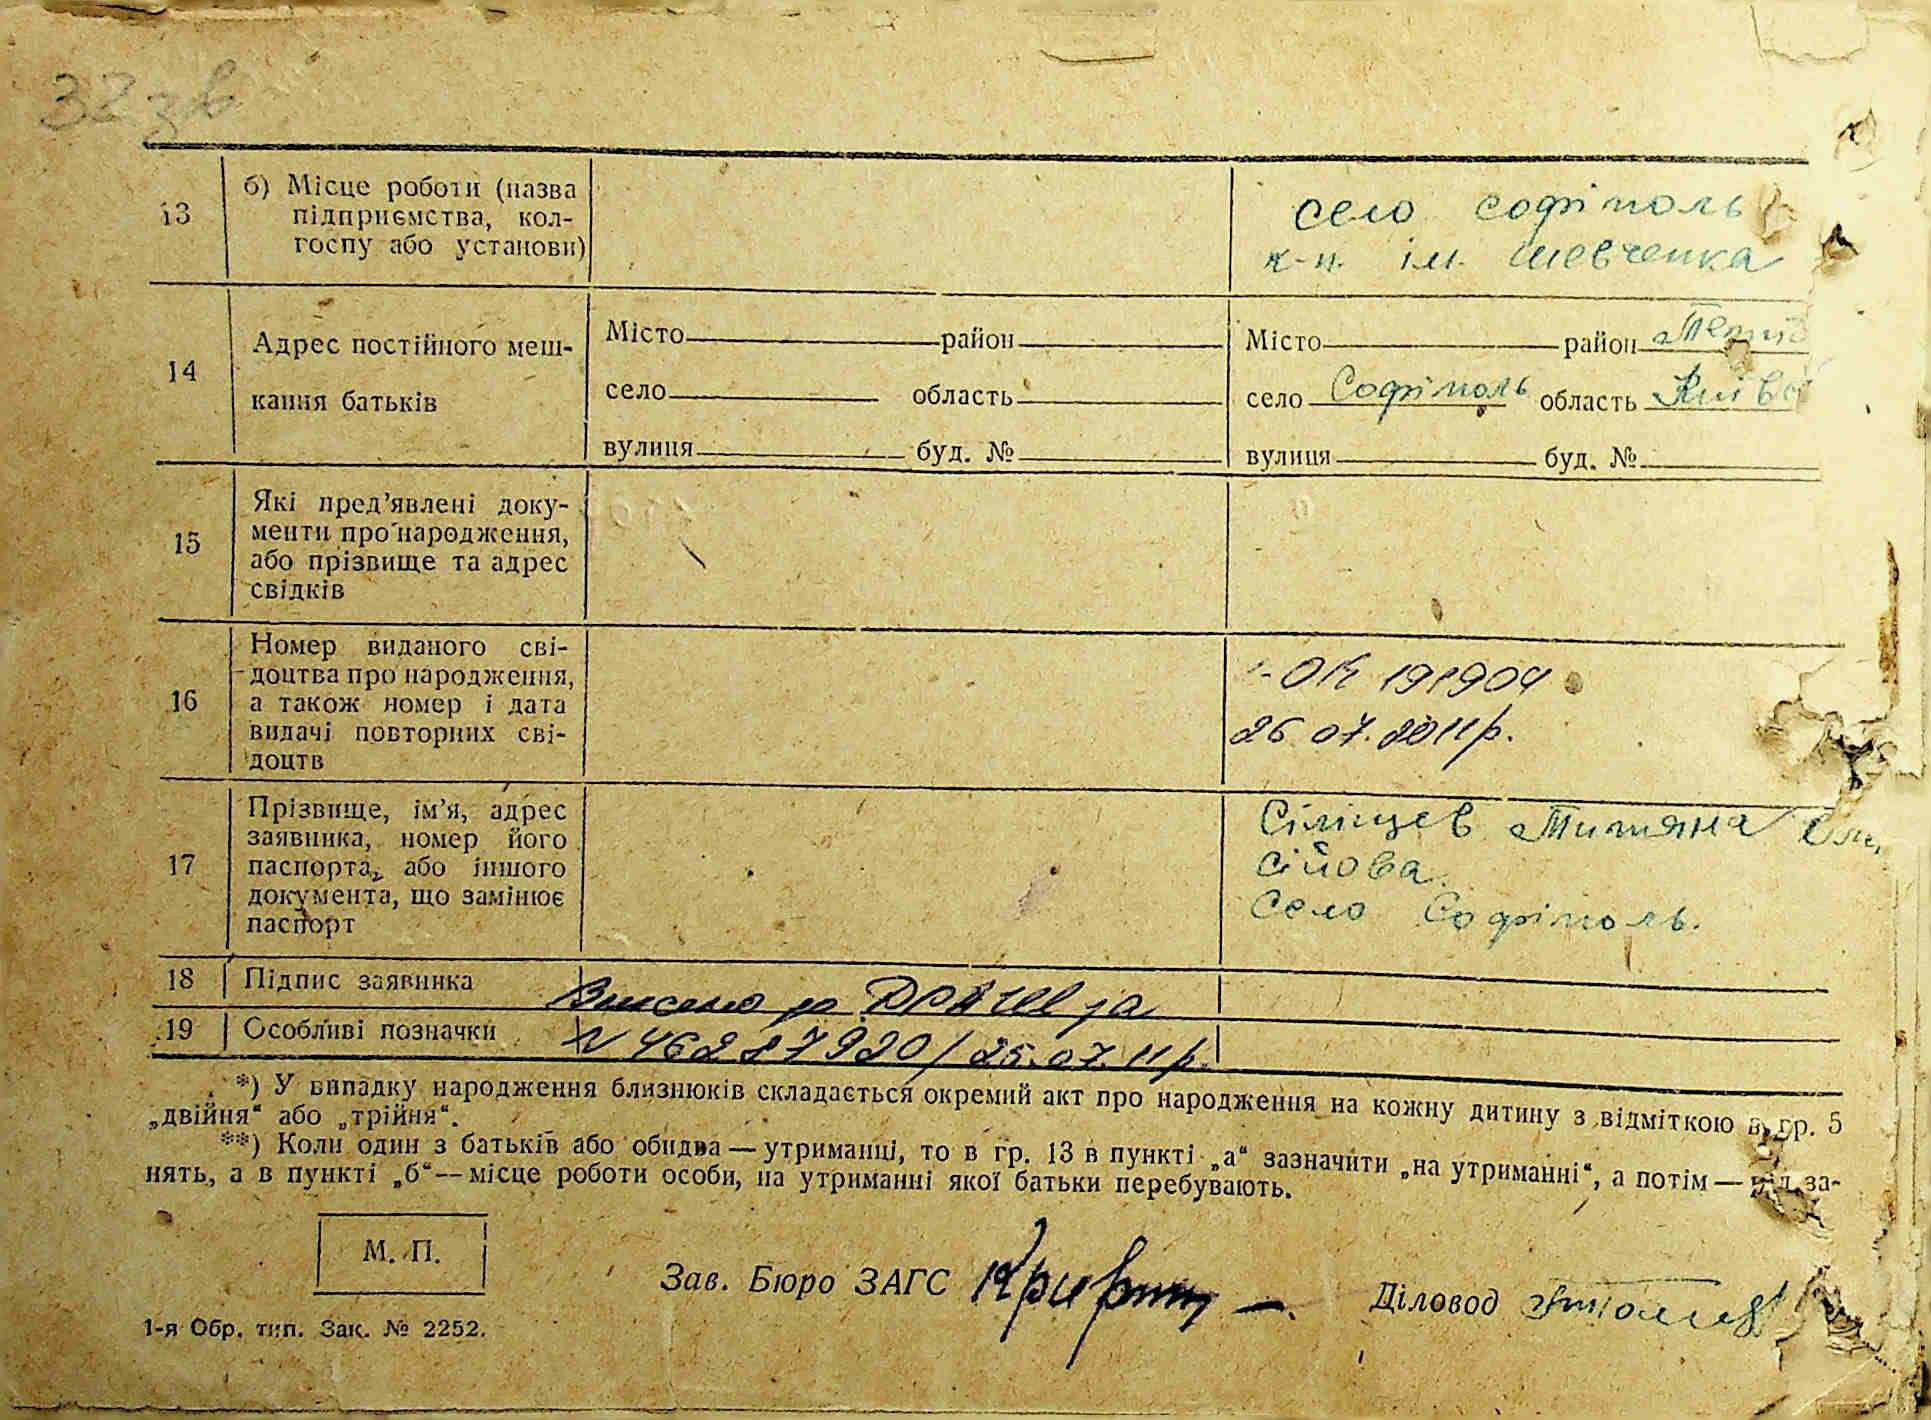 32 зв
13
б) Місце роботи (назва
підприємства, кол-
госпу або установи)
село Софіполь
к-п. ім. Шевченка
14
Адрес постійного меш-
кання батьків
Місто район
село область
вулиця буд. №
Місто район Тетіє
село Софіполь область Київс
вулиця буд. №
15
Які пред'явлені доку-
менти про народження,
або прізвище та адрес
свідків
16
Номер виданого сві-
доцтва про народження,
а також номер і дата
видачі повторних сві-
доцтв
І-ОК 191904
26.07.2011р.
17
Прізвище, ім'я, адрес
заявника, номер його
паспорта, або іншого
документа, що замінює
паспорт
Сілішцев Титяна
сійова.
Село Софіполь.
18 Підпис заявника
Внесено до ДРАЦС за
19 Особливі позначки
N 46287920/25.07.11р.
*) У випадку народження близнюків складається окремий акт про народження на кожну дитину з відміткою в гр. 5
„двійня“ або „трійня“.
**) Коли один з батьків або обидва — утриманці, то в гр. 13 в пункті „а“ зазначити „на утриманні“, а потім — рід за-
нять, а в пункті „б“ — місце роботи особи, на утриманні якої батьки перебувають.
М. П.
Зав. Бюро ЗАГС
Діловод
1-я Обр. тип. Зак. № 2252.